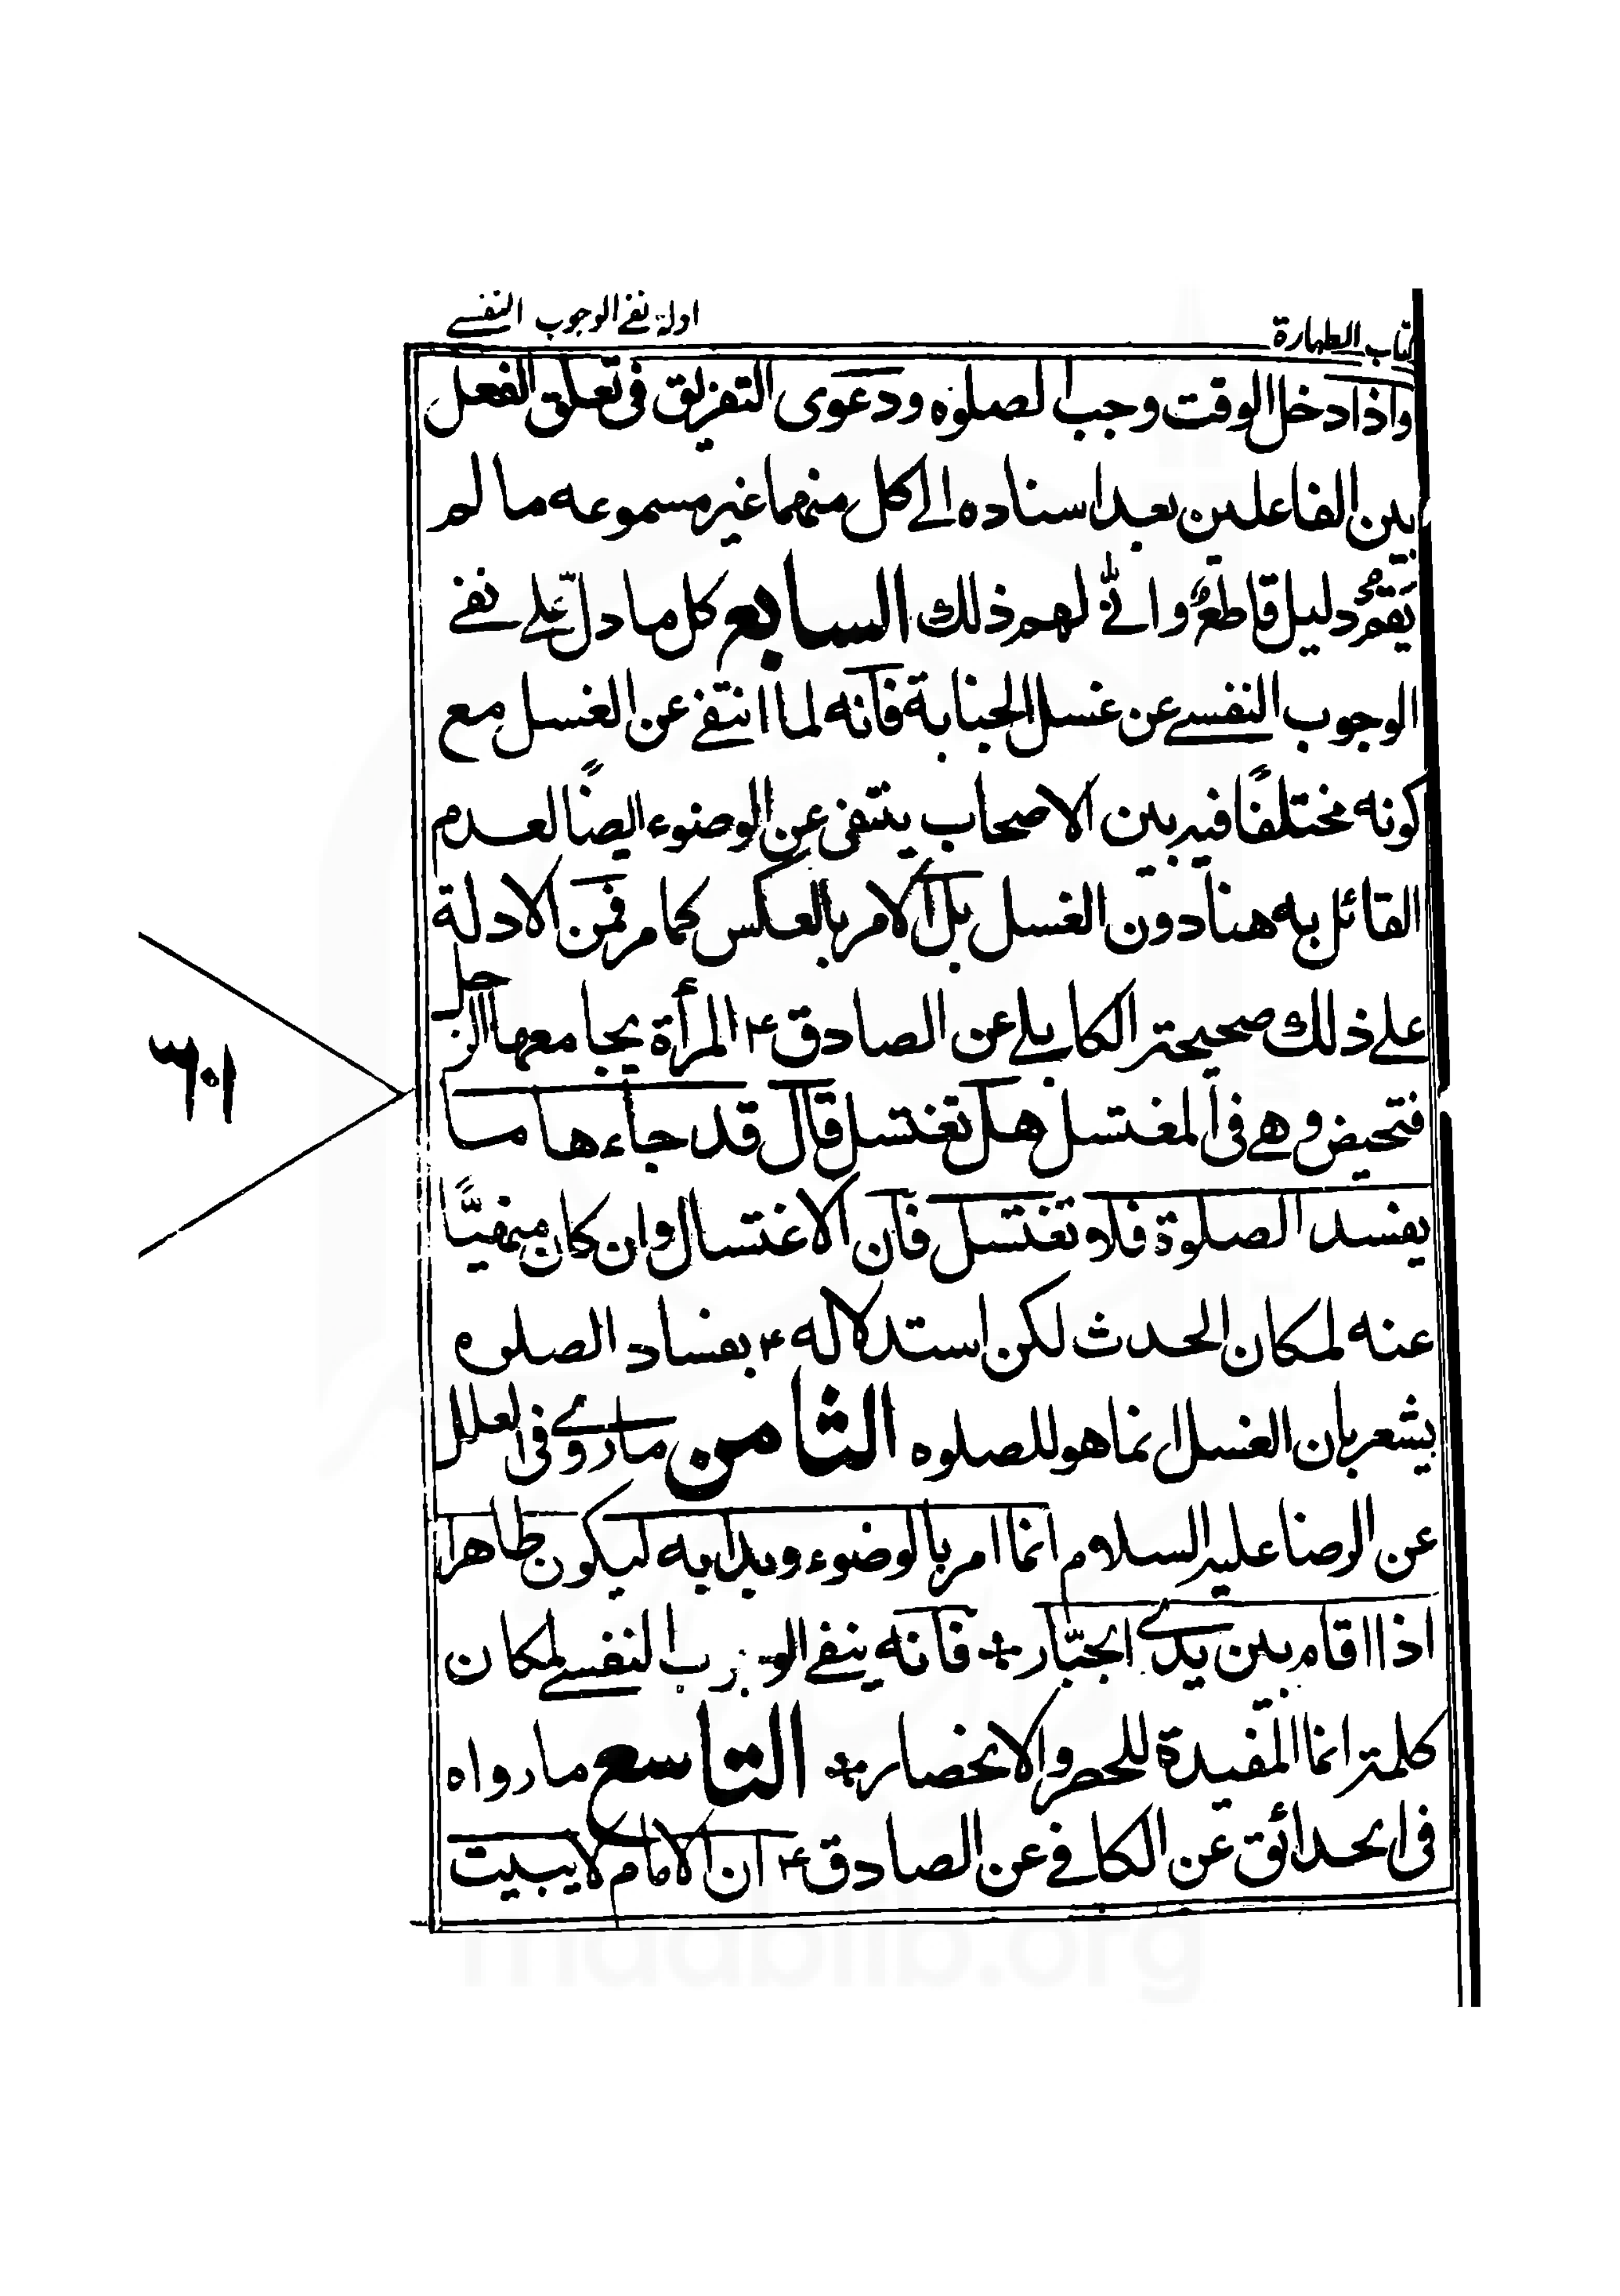 كتاب الطهارة
ادلة نفي الوجوب النفسي
واذا دخل الوقت وجب الصلوه ودعوى التفريق فى تعلق الفعل
بين الفاعلين بعد اسناده الى كل منهما غير مسموعه ما لم
يقم دليل قاطع وانّى لهم ذلك السابع كل ما دلّ على نفي
الوجوب النفسي عن غسل الجنابة فانه لما انتفى عن الغسل مع
كونه مختلفًا فيه بين الاصحاب ينتفى عن الوضوء ايضًا لعدم
القائل به هنا دون الغسل بل الامر بالعكس كما مر فمن الادلة
على ذلك صحيحة الكاهلي عن الصادق ع المرأة يجامعها الرجل
فتحيض وهى فى المغتسل هل تغتسل قال قد جاءها ما
يفسد الصلوة فلا تغتسل فان الاغتسال وان كان منهيًّا
عنه لمكان الحدث لكن استدلاله ع بفساد الصلوه
يشعر بان الغسل انما هو للصلوه الثامن ما روي فى العلل
عن الرضا عليه السلام انما امر بالوضوء وبدا به ليكون طاهرا
اذا اقام بين يدي الجبّار فانه ينفي الوجوب النفسي لمكان
كلمة انما المفيدة للحصر والانحصار التاسع ما رواه
فى الحدائق عن الكافي عن الصادق ع ان الامام لا يبيت
١٠٣
maablib.org